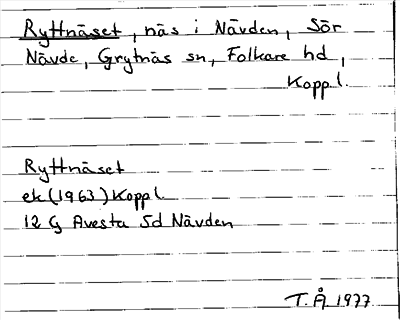 Ryttnäset, näs i Nävden, Sör
Nävde, Grytnäs sn, Folkare hd,
Koppl.
Ryttnäset
ek (1963) Koppl.
12 G Avesta 5d Nävden
T.Å. 1977